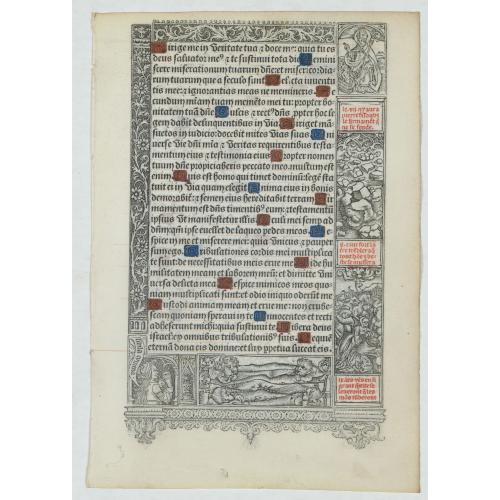 Dirige me in veritate tua ⁊ doce me: quia tu es
deus saluator me⁹ ⁊ te sustinui tota die. Remini
scere miserationum tuarum dñe: et misericordia
rum tuarum que a seculo sunt. Delicta iuuentu
tis mee: ⁊ ignorantias meas ne memineris. Se
cundum miam tuam memēto mei tu: propter bo
nitatem tuā dñe. Dulcis ⁊ rect⁹ dñs: propt hoc le
gem dabit delinquentibus in via. Diriget mā
suetos in iudicio: docebit mites vias suas. Uni
uerse vie dñi mīa ⁊ veritas requirentibus testa-
mentum eius ⁊ testimonia eius. Propter nomen
tuum dñe propiciaberis peccato meo: multum est
enim. Quis est homo qui timet dominū: legē sta
tuit ei in via quam elegit. Anima eius in bonis
demorabit: ⁊ semen eius hereditabit terram. Fir
mamentum est dñs timentib⁹ eum: ⁊ testamentū
ipsius vt manifestetur illis. Oculi mei semp ad
dñm: qm̄ ipse euellet de laqueo pedes meos. Re
spice in me et miserere mei: quia vnicus ⁊ pauper
sum ego. Tribulationes cordis mei multiplica
te sunt: de necessitatibus meis erue me. Vide hu
militatem meam et laborem meū: et dimitte vni
uersa delicta mea. Respice inimicos meos quo
niam multiplicati sunt: et odio iniquo oderūt me
Custodi animam meam et erue me: non erube-
scam quoniam speraui in te. Innocentes et recti
adheserunt michi: quia sustinui te. Libera deus
israel ex omnibus tribulationib⁹ suis. Requiē
eternā dona eis domine: et lux ppetua luceat eis.